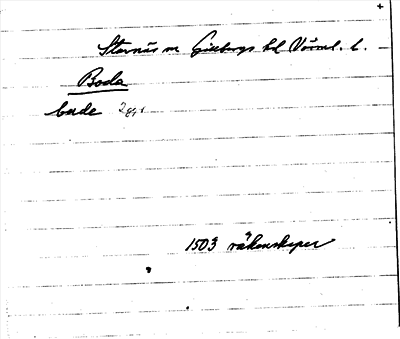 Stavnäs sn Gillbergs hd Värml. l.
Boda
bode 2 ggr
1503 räkenskaper